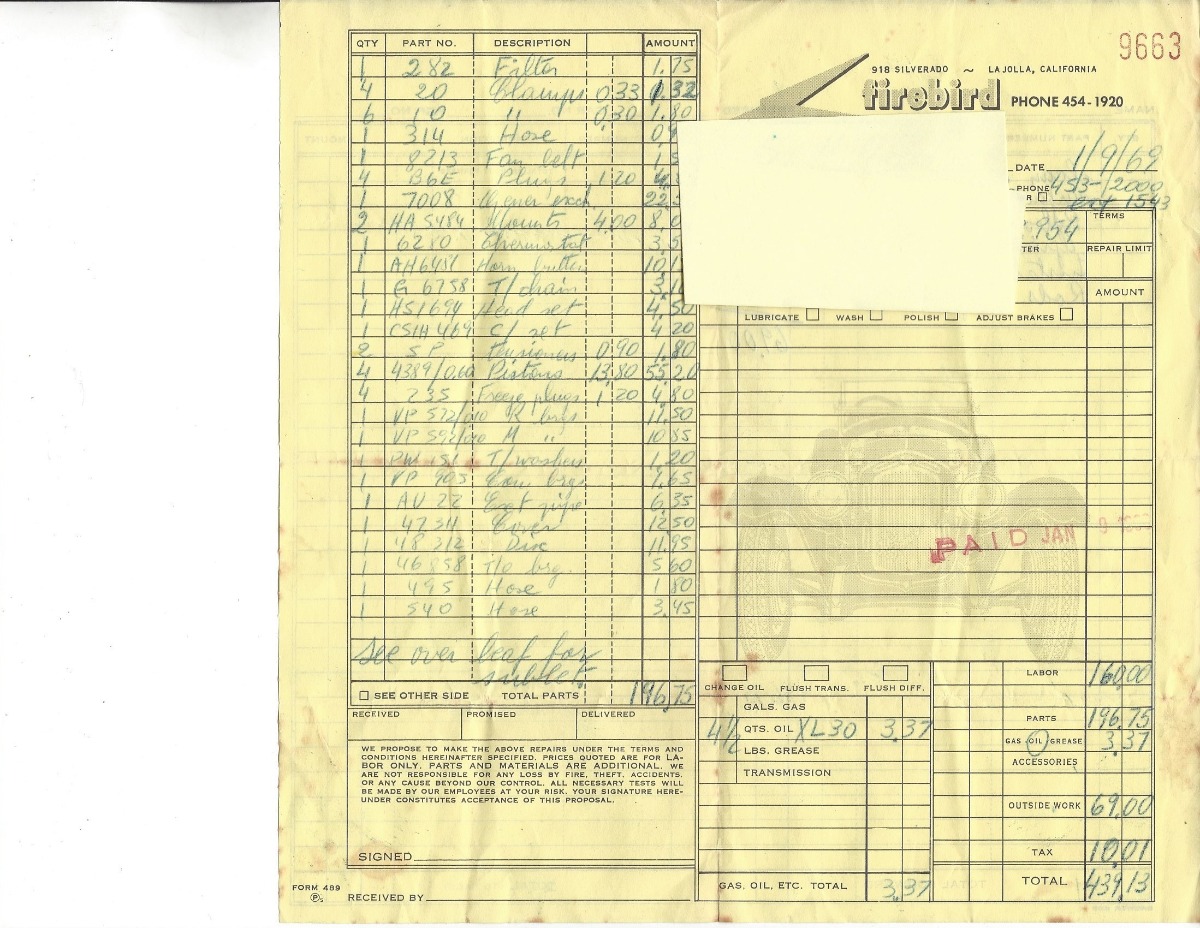 QTY PART NO. DESCRIPTION AMOUNT
1 282 Filter 1.75
4 20 Clamps 0.33 1.32
6 10 " 0.30 1.80
1 314 Hose
1 8213 Fan belt
4 B6E Plugs 1.20
1 7008 exch.
2 HA 5484 Mounts 4.00
1 6280 Thermostat
1 AH6451 Horn button
1 G 6758 T/chain
1 HS1694 Head set 4.50
1 CSIH 469 C/ set 4.20
2 SP Tensioners 0.90 1.80
4 4389/0.60 Pistons 13.80 55.20
4 235 Freeze plugs 1.20 4.80
1 VP 572/010 R brgs 11.50
1 VP 592/010 M " 10.85
1 PW 151 T/washers 1.20
1 VP 905 Cam brgs 7.65
1 AU 22 Ext pipe 6.35
1 4734 Cover 12.50
1 48312 Disc 11.95
1 46858 T/o brg. 5.60
1 495 Hose 1.80
1 540 Hose 3.45
See over leaf for
sublet.
SEE OTHER SIDE TOTAL PARTS 196.75
RECEIVED PROMISED DELIVERED
WE PROPOSE TO MAKE THE ABOVE REPAIRS UNDER THE TERMS AND
CONDITIONS HEREINAFTER SPECIFIED. PRICES QUOTED ARE FOR LA-
BOR ONLY. PARTS AND MATERIALS ARE ADDITIONAL. WE
ARE NOT RESPONSIBLE FOR ANY LOSS BY FIRE, THEFT, ACCIDENTS,
OR ANY CAUSE BEYOND OUR CONTROL. ALL NECESSARY TESTS WILL
BE MADE BY OUR EMPLOYEES AT YOUR RISK. YOUR SIGNATURE HERE-
UNDER CONSTITUTES ACCEPTANCE OF THIS PROPOSAL.
SIGNED
FORM 489
RECEIVED BY
9663
918 SILVERADO ~ LA JOLLA, CALIFORNIA
firebird PHONE 454-1920
DATE 1/9/69
PHONE 453-2000
ext 1543
TERMS
954
REPAIR LIMIT
AMOUNT
LUBRICATE WASH POLISH ADJUST BRAKES
PAID JAN 9
CHANGE OIL FLUSH TRANS. FLUSH DIFF.
GALS. GAS
4 1/2 QTS. OIL XL30 3.37
LBS. GREASE
TRANSMISSION
GAS, OIL, ETC. TOTAL 3.37
LABOR 160.00
PARTS 196.75
GAS OIL GREASE 3.37
ACCESSORIES
OUTSIDE WORK 69.00
TAX 10.01
TOTAL 439.13